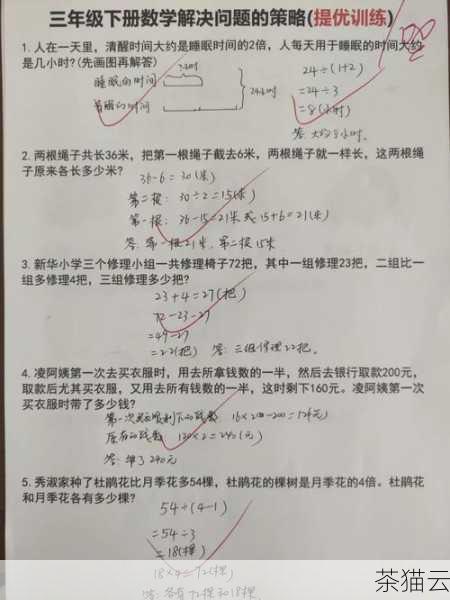 三年级下册数学解决问题的策略(提优训练)
1. 人在一天里，清醒时间大约是睡眠时间的2倍，人每天用于睡眠的时间大约
是几小时?(先画图再解答)
?小时
24÷(1+2)
睡眠的时间
24小时
=24÷3
清醒的时间
=8(小时)
答: 大约8小时.
2. 两根绳子共长36米，把第一根绳子截去6米，两根绳子就一样长，这两根绳
子原来各长多少米?
36-6=30(米)
第二根: 30÷2=15(米)
第一根: 36-15=21米 或15+6=21(米)
答: 第一根21米, 第二根15米
3. 新华小学三个修理小组一共修理椅子72把，其中一组修理23把，二组比一
组多修理4把，三组修理多少把?
23+4=27(把)
72-23-27
=49-27
=22(把) 答: 三组修理22把.
4. 凌阿姨第一次去买衣服时，用去所拿钱数的一半，然后去银行取款200元，
取款后尤其买衣服，又用去所有钱数的一半，这时剩下160元。凌阿姨第一次
买衣服时带了多少钱?
第一次买衣服剩下的钱数: 160×2-200=120(元)
原有的钱数: 120×2=240(元)
答: 带了240元
5. 秀淑家种了杜鹃花比月季花多54棵，杜鹃花的棵树是月季花的4倍。杜鹃花
和月季花各有多少棵?
54÷(4-1)
=54÷3
=18(棵)
18×4=72(棵)
答: 各有72棵和18棵.
茶猫云